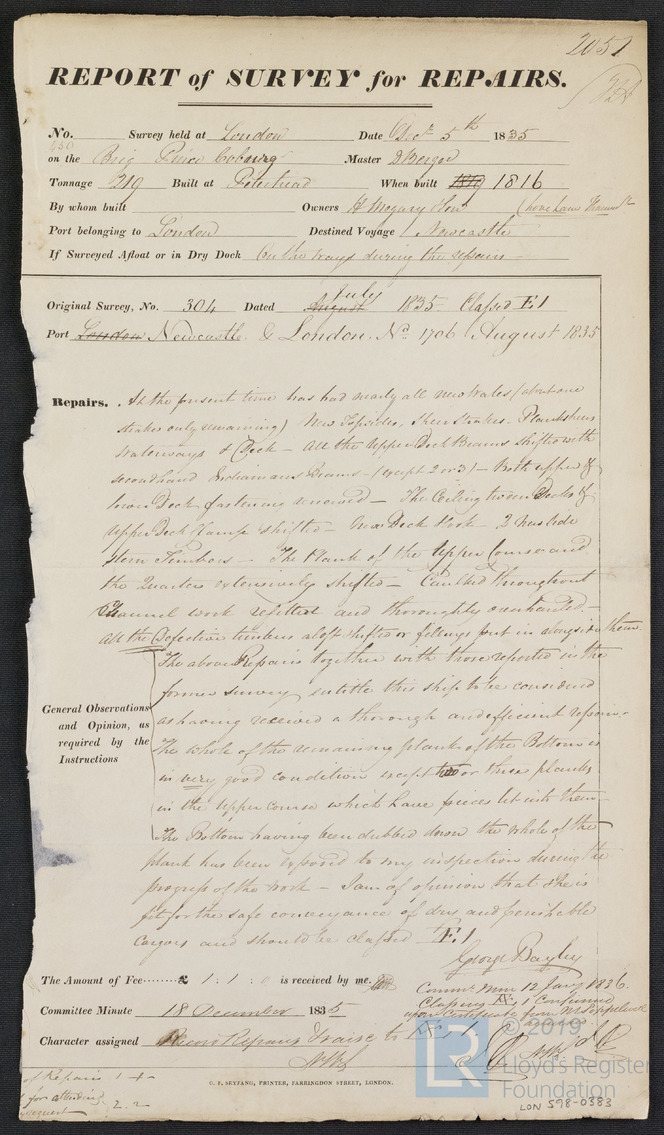 2051
REPORT of SURVEY for REPAIRS.
No. Survey held at London Date Dec. 5th 1835
on the Brig Prince Cobourg Master
Tonnage 219 Built at Peterhead When built 1816
By whom built Owners
Port belonging to London Destined Voyage Newcastle
If Surveyed Afloat or in Dry Dock On the ways during the repairs
July
Original Survey, No. 304 Dated August 1835 Classed E1
Port London Newcastle & London. No. 1706 August 1835
Repairs. At the present time has had nearly all new Wales (about one
strake only remaining) New Topsides, Sheer Strakes, Planksheer
Waterways & Deck - All the Upper Deck Beams shifted with
secondhand Indiamans Beams - (except 2 or 3) - Both upper &
lower Deck fastenings renewed - The Ceiling tween Decks &
Upper Deck Clamp shifted - New Deck Hook - 2 New side
Stern Timbers - The Plank of the Upper Course and
the Quarters extensively shifted - Caulked throughout
Channel work refitted and thoroughly overhauled -
All the Defective timbers aloft shifted or fillings put in alongside them.
The above Repairs together with those reported in the
former survey entitle this ship to be considered
as having received a thorough and efficient repair.
General Observations
and Opinion, as
required by the
Instructions
The whole of the remaining plank of the Bottom is
in very good condition except two or three planks
in the Upper course which have pieces let into them -
The Bottom having been dubbed down the whole of the
plank has been exposed to my inspection during the
progress of the work - I am of opinion that she is
fit for the safe conveyance of dry and perishable
Cargoes and should be classed Æ1
George Bayley
The Amount of Fee £ 1 : 1 : 0 is received by me.
Committee Minute 18 December 1835
Character assigned Repairs to Æ 1
Comm. Min 12 Jany 1836.
Classing Æ 1 Confirmed
upon Certificate from
C. F. SEYFANG, PRINTER, FARRINGDON STREET, LONDON.
of Repairs 1 +
for attending
request 2.2
© 2019
LR
Lloyd's Register
Foundation
LON 598-0383